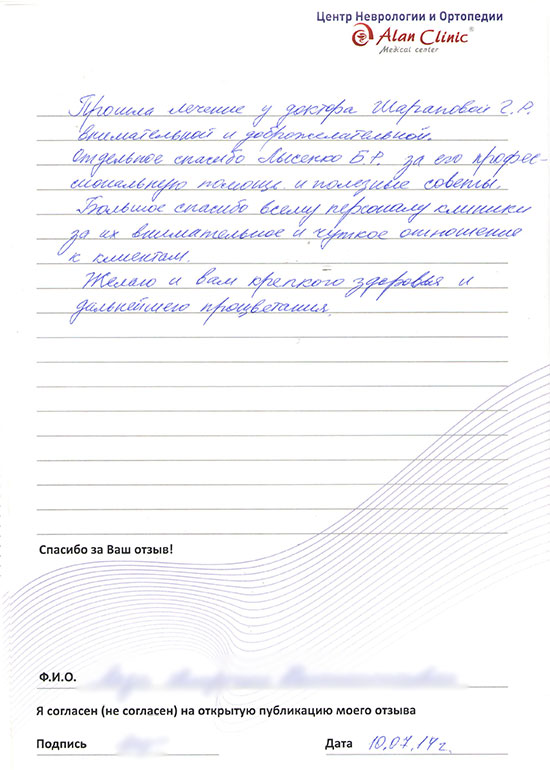 Центр Неврологии и Ортопедии
Alan Clinic®
Medical center
Прошла лечение у доктора Шараповой Г.Р.
внимательной и доброжелательной.
Отдельное спасибо Лысенко Б.Р. за его профес-
сиональную помощь и полезные советы.
Большое спасибо всему персоналу клиники
за их внимательное и чуткое отношение
к клиентам.
Желаю и вам крепкого здоровья и
дальнейшего процветания.
Спасибо за Ваш отзыв!
Ф.И.О.
Я согласен (не согласен) на открытую публикацию моего отзыва
Подпись Дата 10.07.14г.